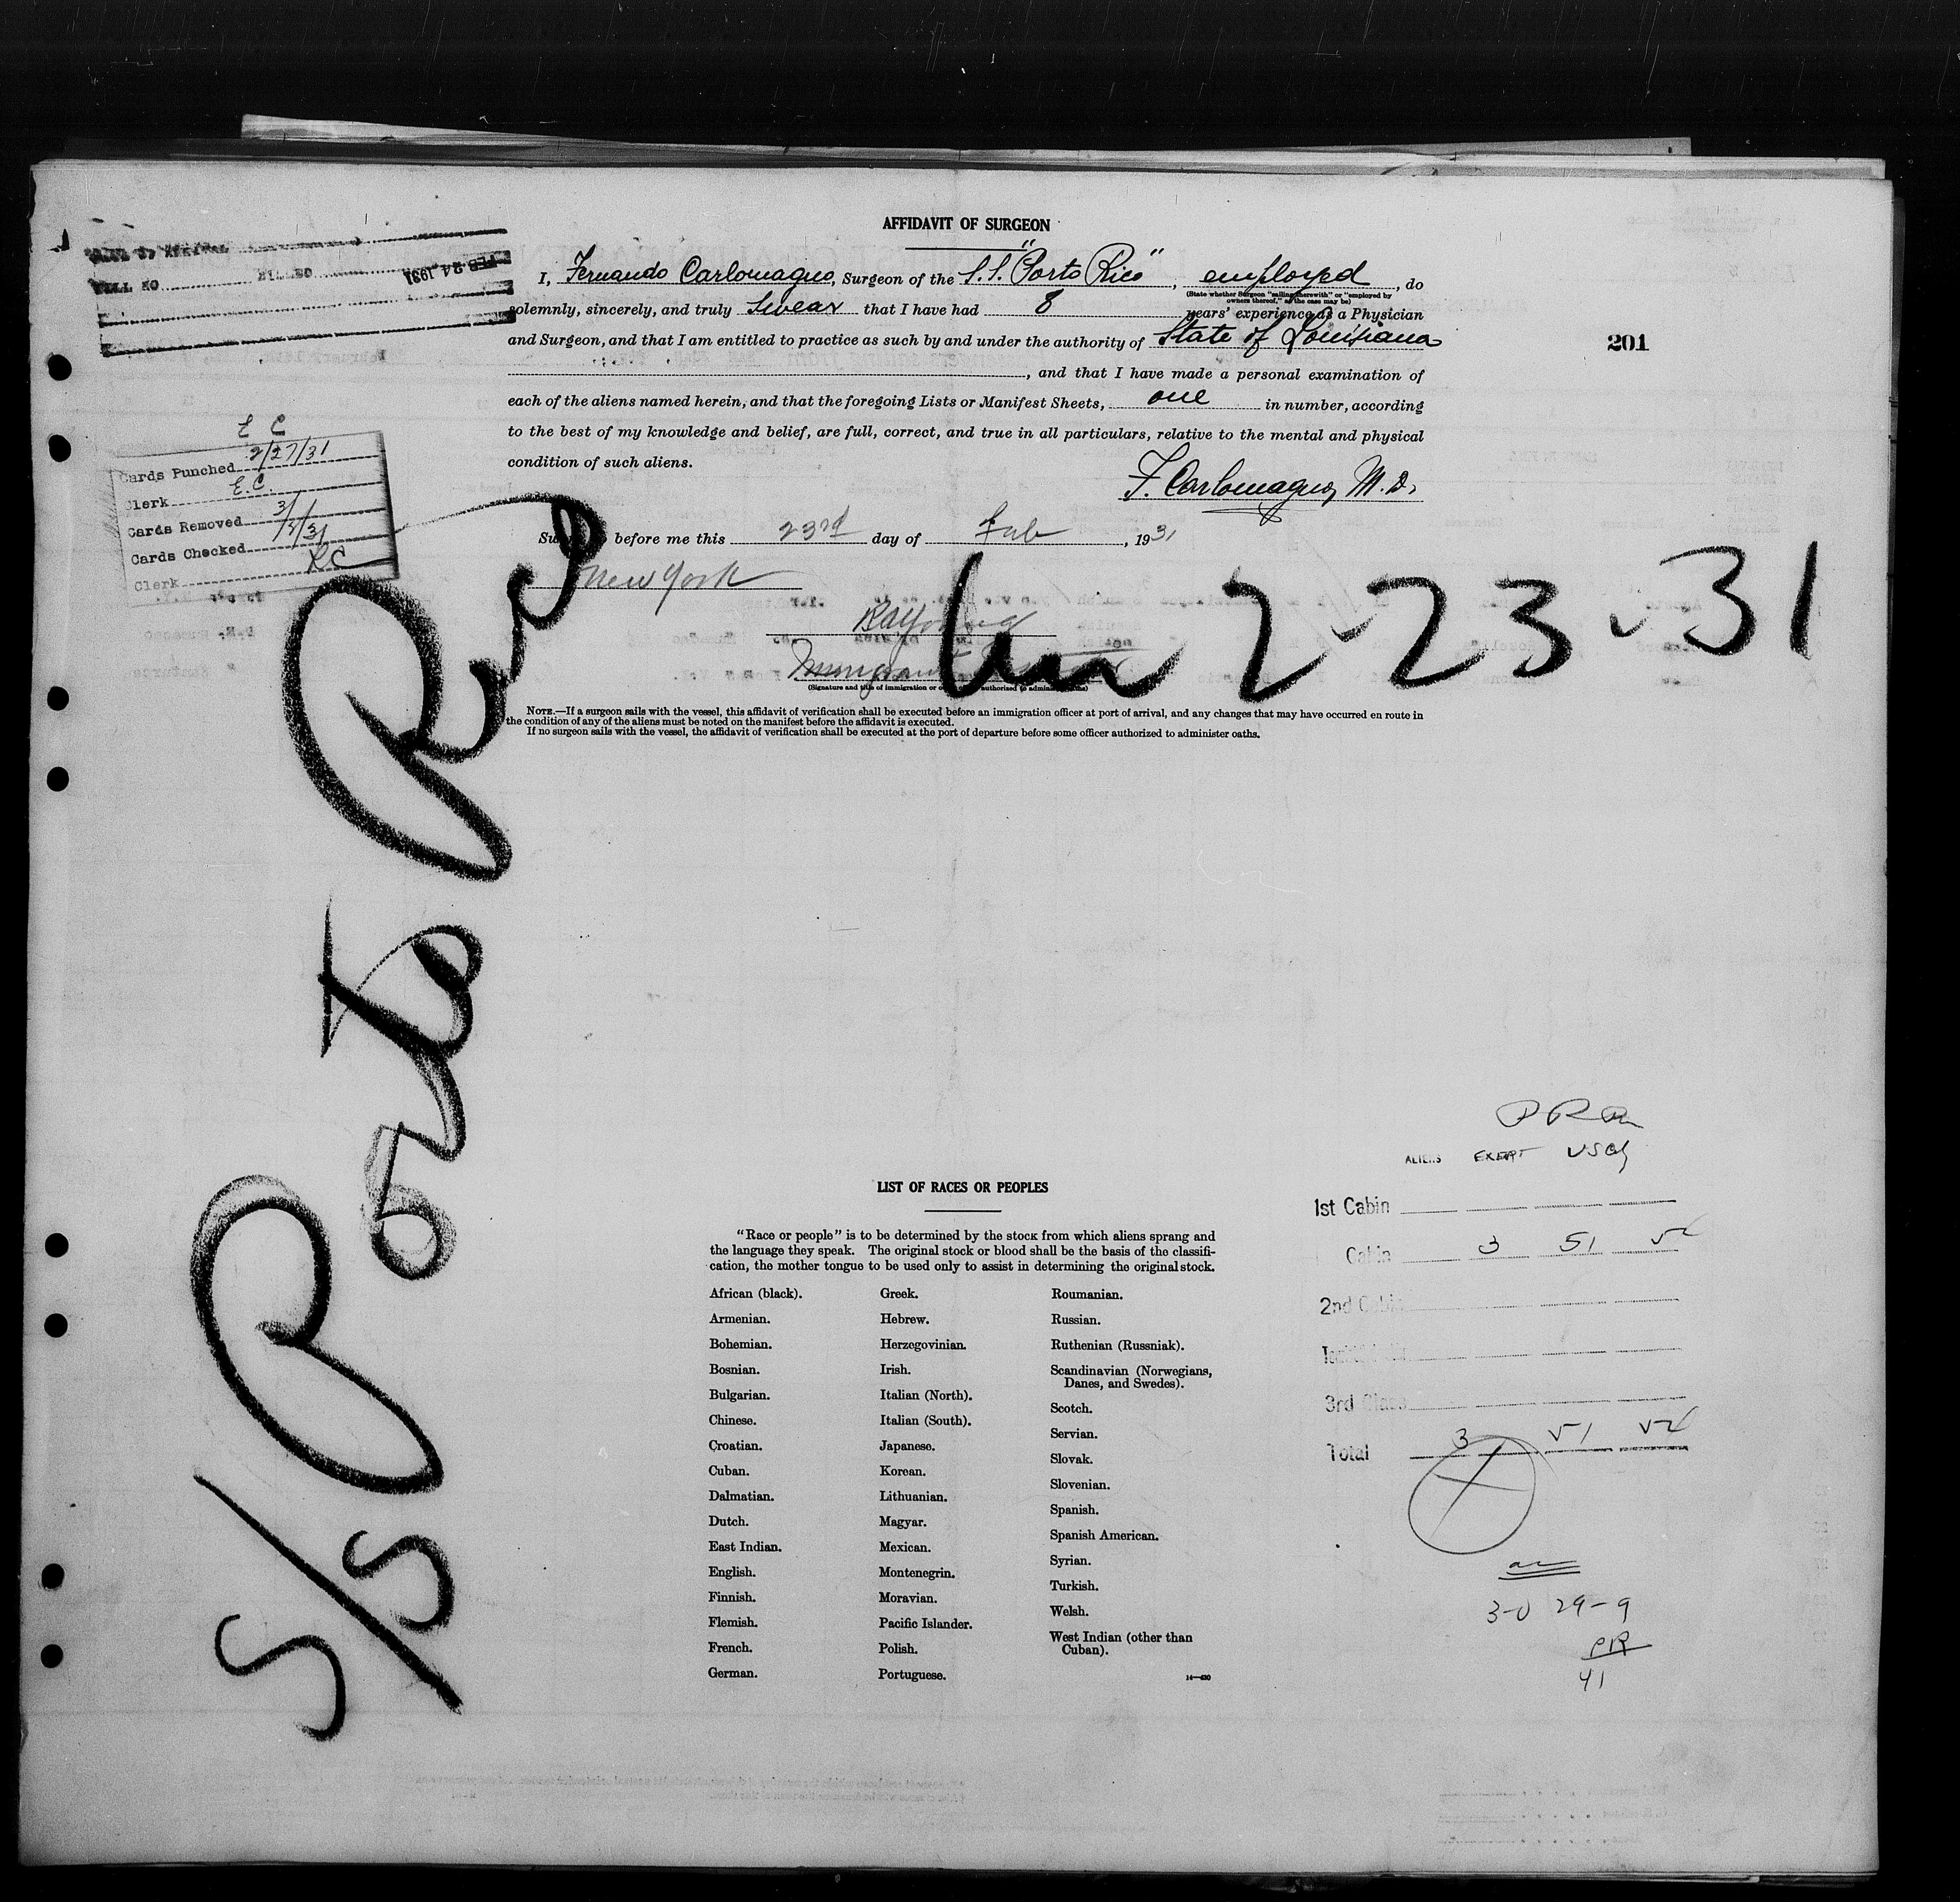 AFFIDAVIT OF SURGEON
I, Fernando Carlomagno, Surgeon of the S.S. "Porto Rico", employed, do
(State whether Surgeon "sailing therewith" or "employed by owners thereof," as the case may be)
solemnly, sincerely, and truly Swear that I have had 8 years' experience as a Physician
and Surgeon, and that I am entitled to practice as such by and under the authority of State of Louisiana
, and that I have made a personal examination of
each of the aliens named herein, and that the foregoing Lists or Manifest Sheets, one in number, according
to the best of my knowledge and belief, are full, correct, and true in all particulars, relative to the mental and physical
condition of such aliens.
F. Carlomagno, M.D.
before me this 23rd day of Feb, 1931
New York
(Signature and title of immigration or authorized to administer oaths)
NOTE.—If a surgeon sails with the vessel, this affidavit of verification shall be executed before an immigration officer at port of arrival, and any changes that may have occurred en route in
the condition of any of the aliens must be noted on the manifest before the affidavit is executed.
If no surgeon sails with the vessel, the affidavit of verification shall be executed at the port of departure before some officer authorized to administer oaths.
FEB 24 1931
201
E C
Cards Punched 2/27/31
Clerk E.C.
Cards Removed
Cards Checked
Clerk
S/S Porto Rico
2-23-31
LIST OF RACES OR PEOPLES
"Race or people" is to be determined by the stock from which aliens sprang and
the language they speak. The original stock or blood shall be the basis of the classifi-
cation, the mother tongue to be used only to assist in determining the original stock.
African (black).
Armenian.
Bohemian.
Bosnian.
Bulgarian.
Chinese.
Croatian.
Cuban.
Dalmatian.
Dutch.
East Indian.
English.
Finnish.
Flemish.
French.
German.
Greek.
Hebrew.
Herzegovinian.
Irish.
Italian (North).
Italian (South).
Japanese.
Korean.
Lithuanian.
Magyar.
Mexican.
Montenegrin.
Moravian.
Pacific Islander.
Polish.
Portuguese.
Roumanian.
Russian.
Ruthenian (Russniak).
Scandinavian (Norwegians,
Danes, and Swedes).
Scotch.
Servian.
Slovak.
Slovenian.
Spanish.
Spanish American.
Syrian.
Turkish.
Welsh.
West Indian (other than
Cuban).
ALIENS
1st Cabin
Cabin 3 51
2nd Cabin
3rd Class
Total 3 51
3-0 29-9
PR
41